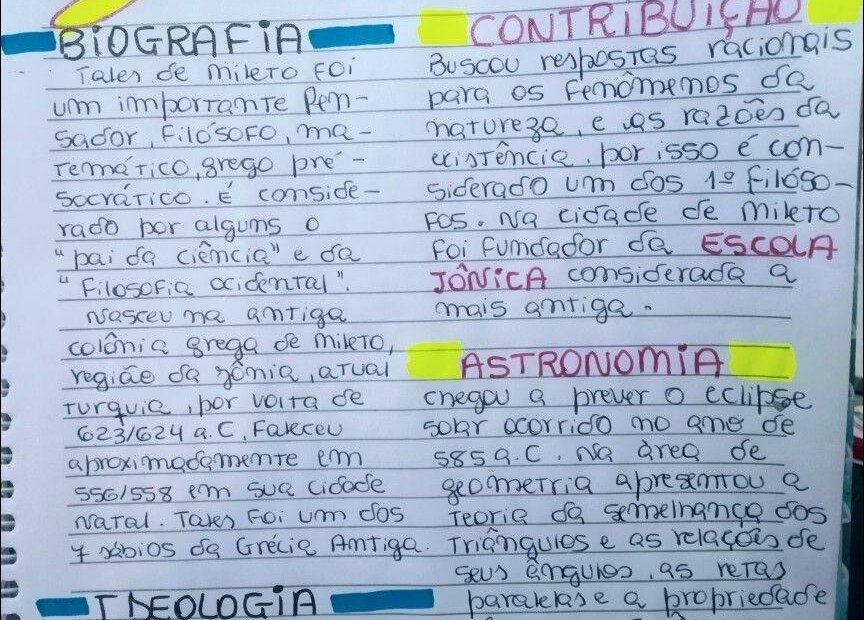 BIOGRAFIA
Tales de mileto foi
um importante Pen-
sador, filósofo, ma-
temático, grego pré-
socrático. É conside-
rado por alguns o
"pai da ciência" e da
"Filosofia ocidental".
Nasceu na antiga
colônia grega de mileto,
região da Jônia, atual
turquia, por volta de
623/624 a.C, Faleceu
aproximadamente em
556/558 em sua cidade
natal. Tales foi um dos
7 sábios da Grécia Antiga.
IDEOLOGIA
CONTRIBUIÇÃO
Buscou respostas racionais
para os fenômenos da
natureza, e as razões da
existência, por isso é con-
siderado um dos 1º filóso-
fos. Na cidade de mileto
foi fundador da ESCOLA
JÔNICA considerada a
mais antiga.
ASTRONOMIA
chegou a prever o eclipse
solar ocorrido no ano de
585 a.C. Na área de
geometria apresentou a
teoria da semelhança dos
triângulos e as relações de
seus ângulos, as retas
paralelas e a propriedade